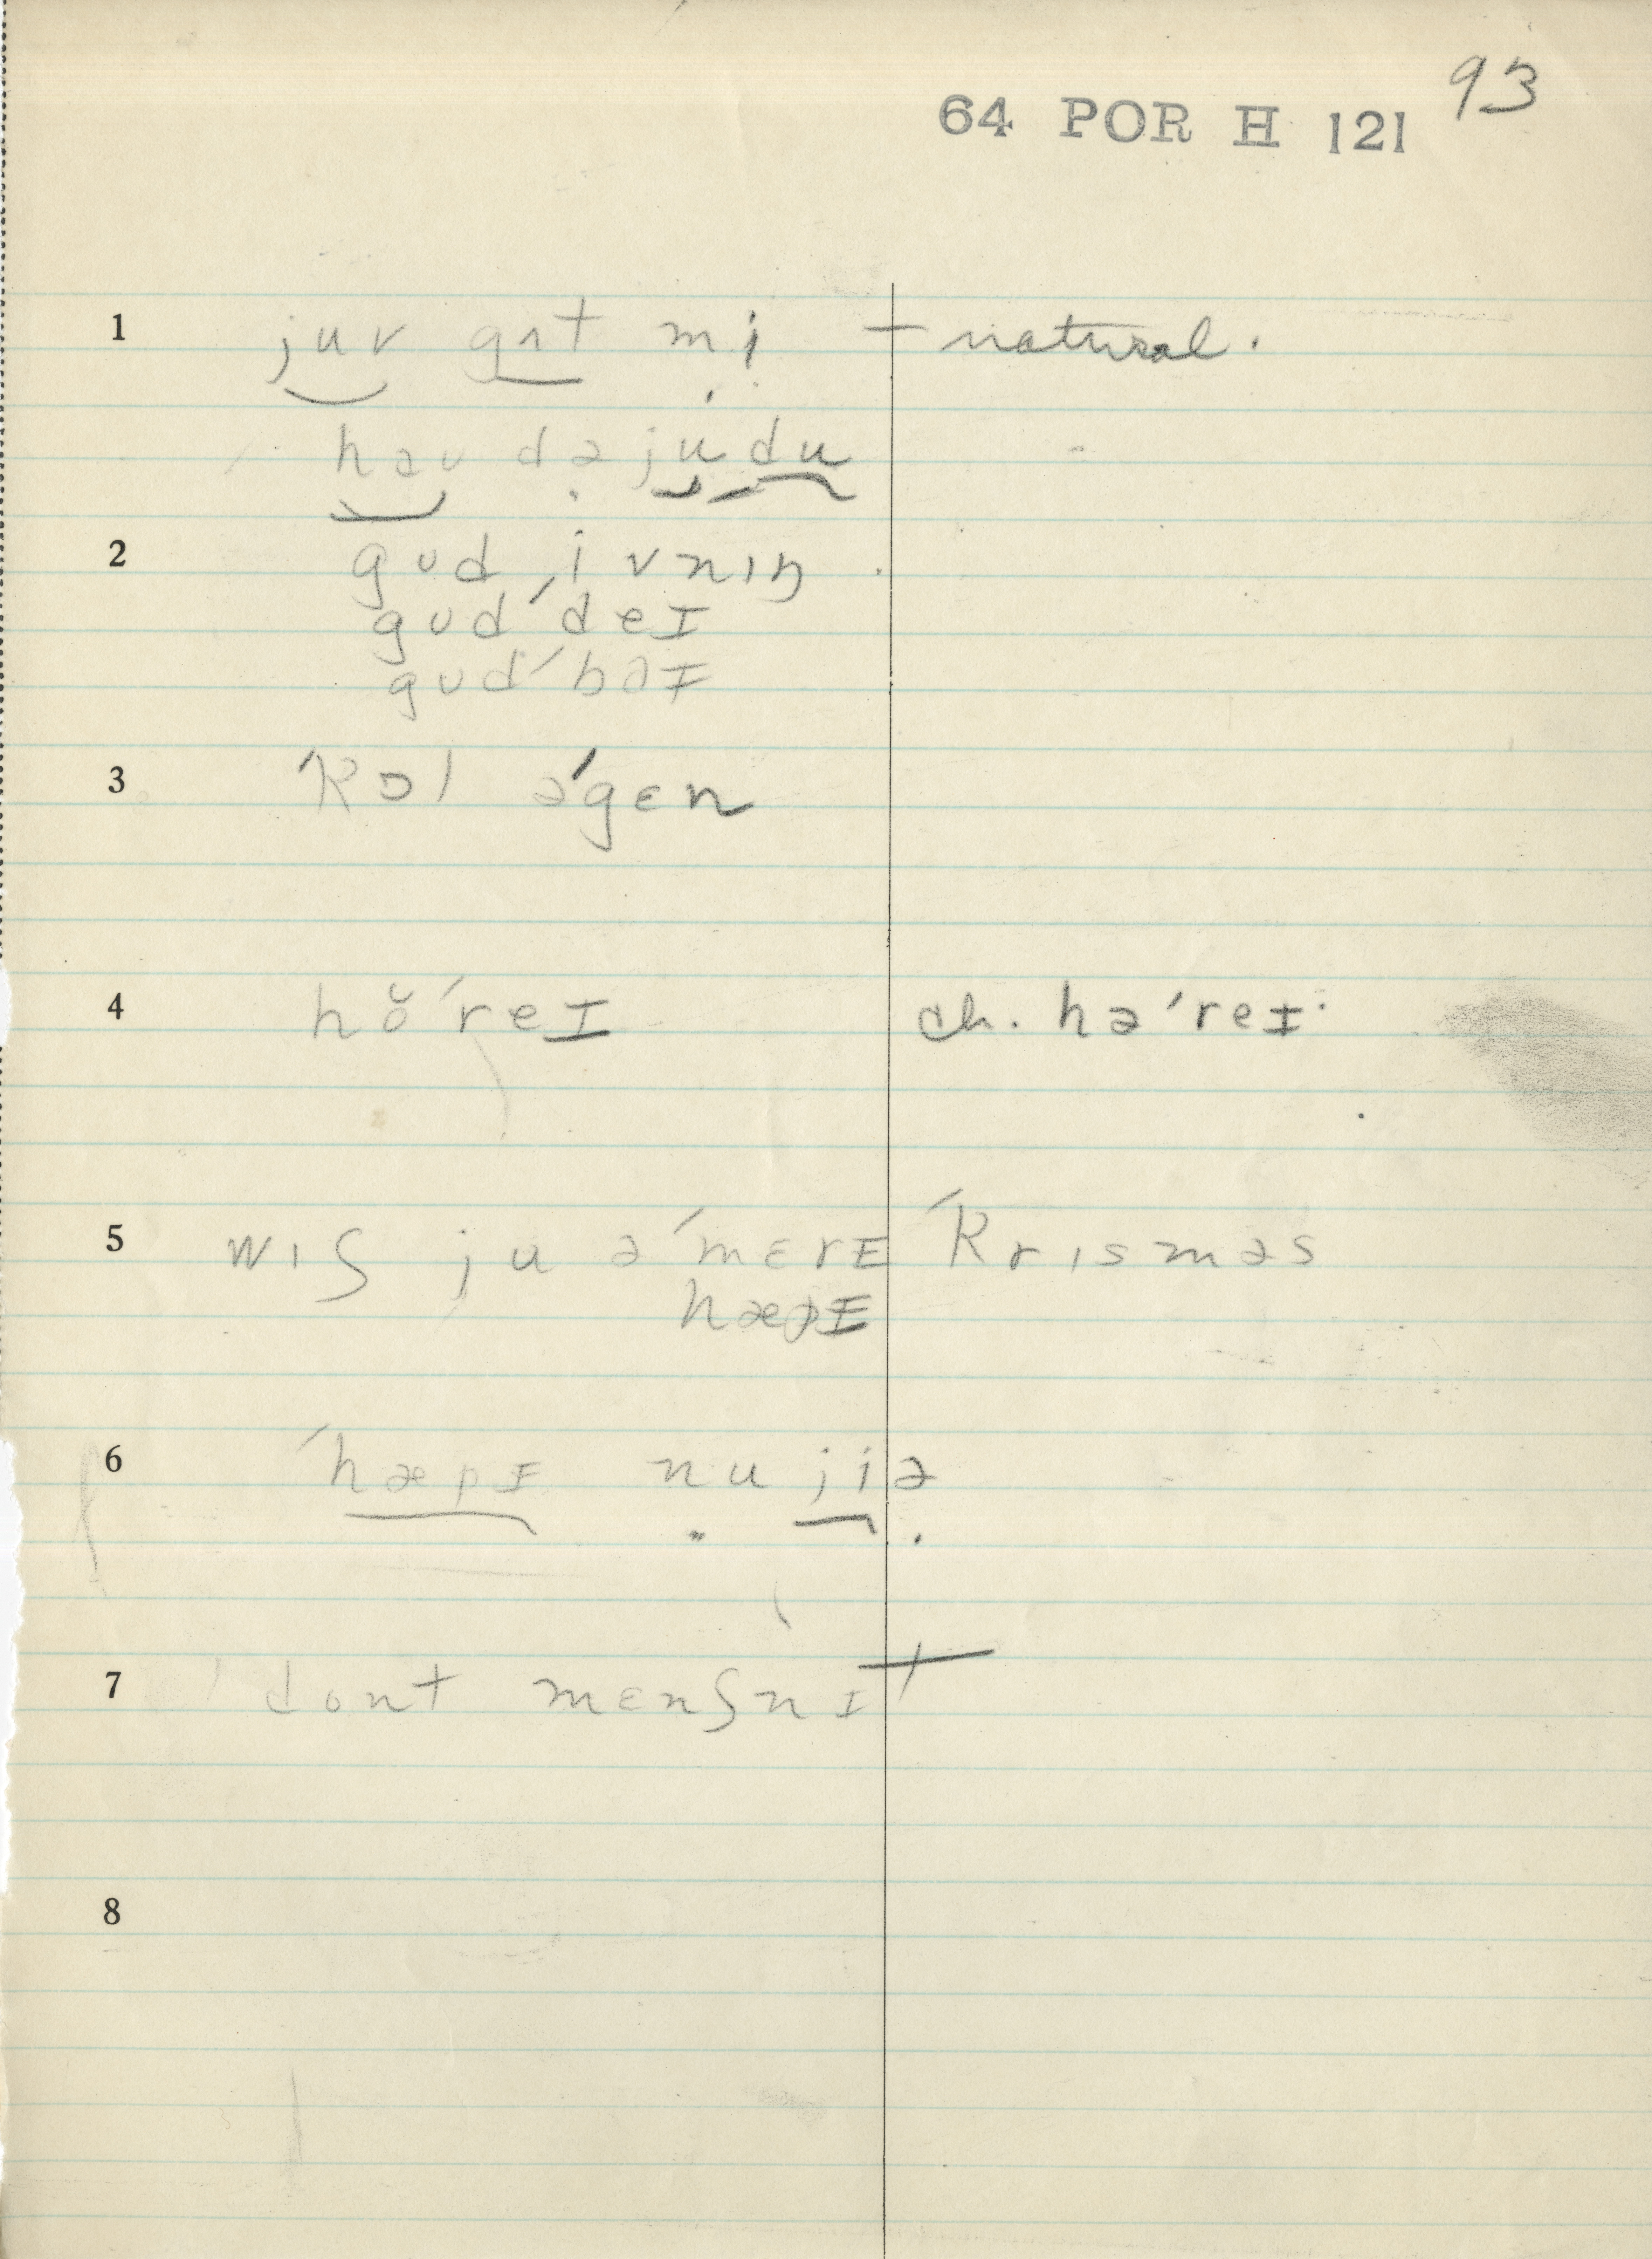 93
64 POR H 121
1 juv gɑt mi — natural.
həʊ də ju du
2 gʊd ˈivnɪŋ
gʊdˈdeɪ
gʊdˈbəɪ
3 ˈkɔl əˈgɛn
4 hŏˈreɪ ch. həˈreɪ.
5 wɪʃ ju əˈmɛrɪ ˈkrɪsməs
hæpɪ
6 ˈhæpɪ nu jiə
7 dont mɛnʃnɪt
8